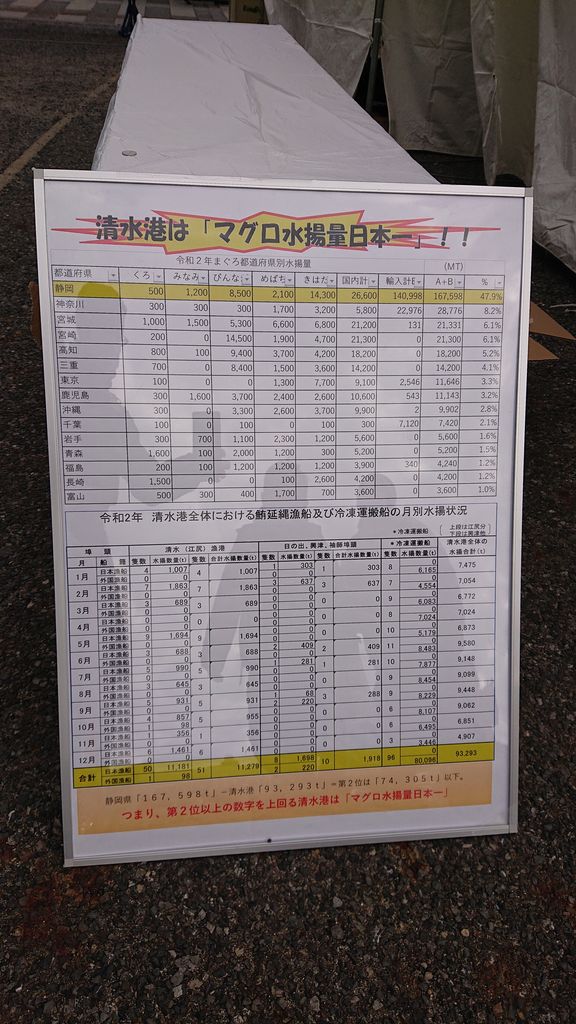 清水港は「マグロ水揚量日本一」！！
令和２年まぐろ都道府県別水揚量 (MT)
都道府県 くろ みなみ びんな めばち きはだ 国内計 輸入計B A+B %
静岡 500 1,200 8,500 2,100 14,300 26,600 140,998 167,598 47.9%
神奈川 300 300 300 1,700 3,200 5,800 22,976 28,776 8.2%
宮城 1,000 1,500 5,300 6,600 6,800 21,200 131 21,331 6.1%
宮崎 200 0 14,500 1,900 4,700 21,300 0 21,300 6.1%
高知 800 100 9,400 3,700 4,200 18,200 0 18,200 5.2%
三重 700 0 8,400 1,500 3,600 14,200 0 14,200 4.1%
東京 100 0 0 1,300 7,700 9,100 2,546 11,646 3.3%
鹿児島 300 1,600 3,700 2,400 2,600 10,600 543 11,143 3.2%
沖縄 300 0 3,300 2,600 3,700 9,900 2 9,902 2.8%
千葉 100 0 100 0 100 300 7,120 7,420 2.1%
岩手 300 700 1,100 2,300 1,200 5,600 0 5,600 1.6%
青森 1,600 100 2,000 1,200 300 5,200 0 5,200 1.5%
福島 200 100 1,200 1,200 1,200 3,900 340 4,240 1.2%
長崎 1,500 0 0 100 2,600 4,200 0 4,200 1.2%
富山 500 300 400 1,700 700 3,600 0 3,600 1.0%
令和2年 清水港全体における鮪延縄漁船及び冷凍運搬船の月別水揚状況
＊冷凍運搬船 上段は江尻分 下段は興津他
埠頭 清水（江尻）漁港 日の出、興津、袖師埠頭 ＊冷凍運搬船 清水港全体の
月 船種 隻数 水揚数量(t) 隻数 合計水揚数量(t) 隻数 水揚数量(t) 隻数 合計水揚数量(t) 隻数 水揚数量(t) 水揚合計(t)
1月 日本漁船 4 1,007 4 1,007 1 303 1 303 8 0 7,475
外国漁船 0 0 6,165
2月 日本漁船 7 1,863 7 1,863 3 637 3 637 7 0 7,054
外国漁船 0 0 4,554
3月 日本漁船 3 689 3 689 0 0 9 0 6,772
外国漁船 0 0 6,083
4月 日本漁船 0 0 0 0 0 8 0 7,024
外国漁船 0 0 7,024
5月 日本漁船 9 1,694 9 1,694 0 0 10 0 6,873
外国漁船 0 0 5,179
6月 日本漁船 3 688 3 688 2 409 2 409 11 0 9,580
外国漁船 0 0 8,483
7月 日本漁船 5 990 5 990 1 281 1 281 10 0 9,148
外国漁船 0 0 7,877
8月 日本漁船 3 645 3 645 0 0 9 0 9,099
外国漁船 0 0 8,454
9月 日本漁船 5 931 5 931 1 68 3 288 9 0 9,448
外国漁船 0 2 220 8,229
10月 日本漁船 4 857 5 955 0 0 6 0 9,062
外国漁船 1 98 0 8,107
11月 日本漁船 1 356 1 356 0 0 6 0 6,851
外国漁船 0 0 6,495
12月 日本漁船 6 1,461 6 1,461 0 0 3 0 4,907
外国漁船 0 0 3,446
合計 日本漁船 50 11,181 51 11,279 8 1,698 10 1,918 96 0 93,293
外国漁船 1 98 2 220 80,096
静岡県「１６７，５９８ｔ」－清水港「９３，２９３ｔ」＝第２位は「７４，３０５ｔ」以下。
つまり、第２位以上の数字を上回る清水港は「マグロ水揚量日本一」